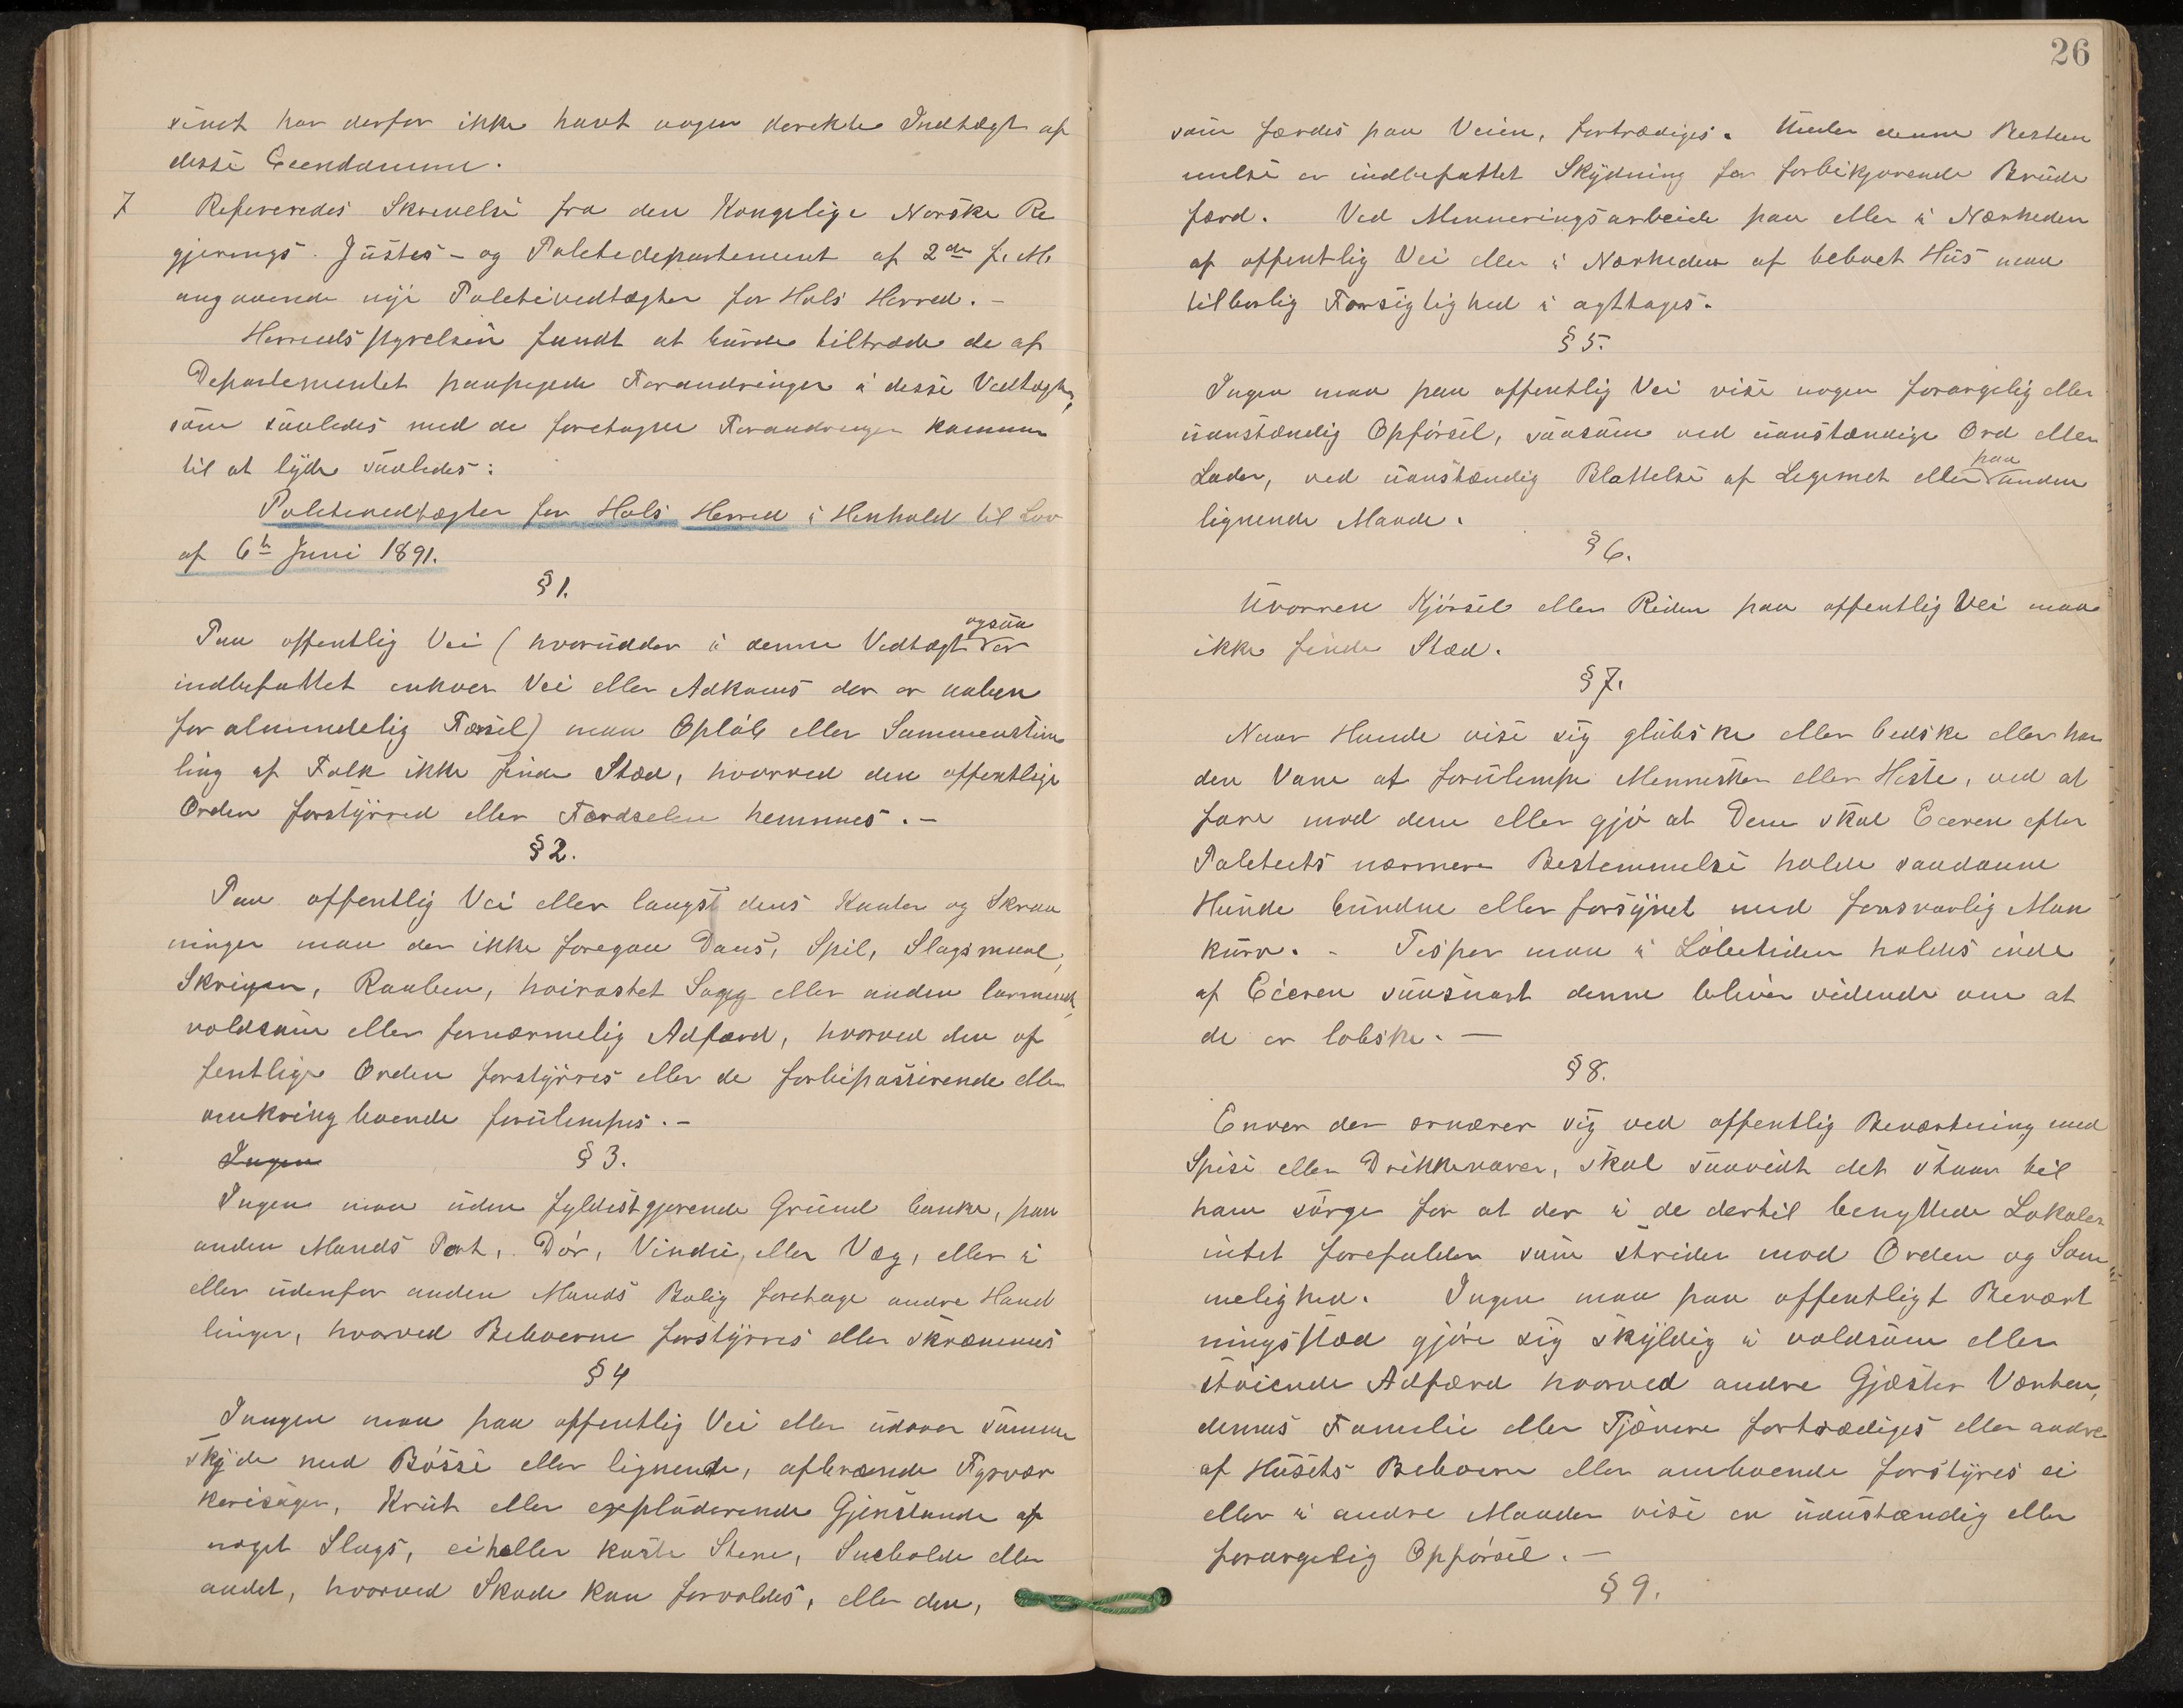 senet har derfor ikke havt nogen derekte Indtægt af
disse Eiendomme.
7 Refereredes Skrivelse fra den Kongelige Norske Re
gjerings Justis- og Politidepartement af 2den f. M.
angaaende nye Politivedtægter for Hols Herred. -
Herredsstyrelsen fandt at burde tiltræde de af
Departementet paapegede Forandringer i disse Vedtægter,
som saaledes med de foretagne Forandringer kommer
til at lyde saaledes:
Politivedtægter for Hols Herred i Henhold til Lov
af 6te Juni 1891.
§ 1.
Paa offentlig Vei (hvorudder i denne Vedtægt ogsaa er
indbefattet enhver Vei eller Adkomst der er aaben
for almindelig Færsel) maa Opløb eller Sammenstim
ling af Folk ikke finde Sted, hvorved den offentlige
Orden forstyrred eller Færdselen hemmes. -
§ 2.
Paa offentlig Vei eller langst dens Kanter og Skraa
ninger maa der ikke foregaa Dans, Spil, Slagsmaal,
Skrigen, Raaben, høirøstet Sang eller anden larmende,
voldsom eller fornærmelig Adfærd, hvorved den of
fentlige Orden forstyrres eller de forbipasserende eller
omkring boende forulempes. -
Ingen § 3.
Ingen maa uden fyldestgjørende Grund banke, paa
anden Mands Port, Dør, Vindu, eller Væg, eller i
eller udenfor anden Mands Bolig foretage andre Hand
linger, hvorved Beboerne forstyrres eller skræmmes
§ 4
Inngen maa paa offentlig Vei eller udover samme
skyde med Bøsse eller lignende, afbrænde Fyrvær
kerisager, Krut eller exploderende Gjenstande af
noget Slags, eiheller kaste Stene, Snebolde eller
andet, hvorved Skade kan forvoldes, eller den,
26
som færdes paa Veien, fortrædiges. Under denne Bestem
melse er indbefattet Skydning for forbikjørende Brude
færd. Ved Mineringsarbeide paa eller i Nærheden
af offentlig Vei eller i Nærheden af beboet Hus maa
tilbørlig Forsigtighed i agttages.
§ 5.
Ingen maa paa offentlig Vei vise nogen forargelig eller
uanstændig Opførsel, saasom ved uanstændige Ord eller
Lader, ved uanstændig Blottelse af Legemet eller paa anden
lignende Maade.
§ 6.
Uvorren Kjørsel eller Riden paa offentlig Vei maa
ikke finde Sted.
§ 7.
Naar Hunde vise sig glubske eller bedske eller har
den Vane at forulempe Mennesker eller Heste, ved at
fare mod dem eller gjø at Dem skal Eieren efter
Politiets nærmere Bestemmelse holde saadanne
Hunde bundne eller forsynet med forsvarlig Mun
kurv. - Tisper maa i Løbetiden holdes inde
af Eieren saasnart denne bliver vidende om at
de er løbske. -
§ 8.
Enver der ernærer sig ved offentlig Beværtning med
Spise eller Drikkevarer, skal saavidt det staar til
ham sørge for at der i de dertil benyttede Lokaler
intet forefalder som strider mod Orden og Søm
melighed. Ingen maa paa offentligt Bevært
ningssted gjøre sig skyldig i voldsom eller
støiende Adfærd hvorved andre Gjæster Værten,
dennes Familie eller Tjænere fortrædiges eller andre
af Husets Beboere eller omboende forstyres ei
eller i andre Maader vise en uanstændig eller
forargelig Opførsel. -
§ 9.